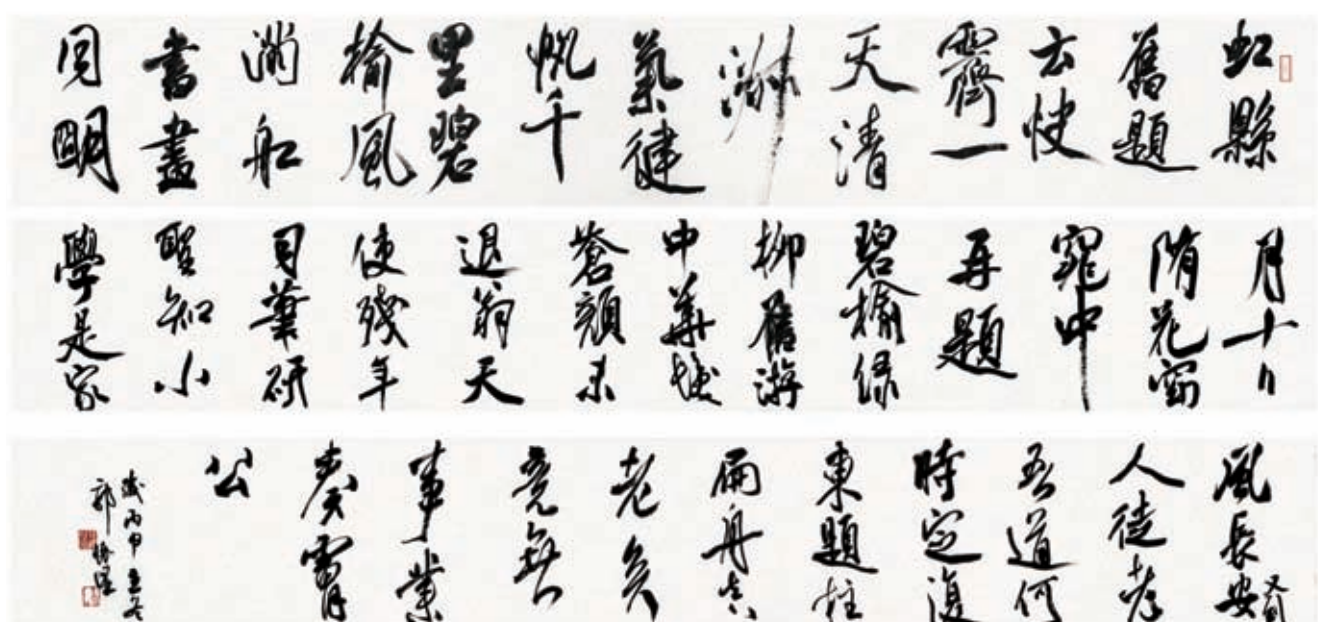 虹縣
舊題
云快
霽一
天清
淑
氣健
帆千
里碧
榆風
滿船
書畫
同明
月十日
隋花窈
窕中
再題
碧榆綠
柳舊游
中華髮
蒼顏未
退翁天
使殘年
司筆研
聖知小
學是家
風長安又到
人徒老
吾道何
時定復
東題柱
扁舟真
老矣
竟無
事業
奏膚
公
歲丙申
郭